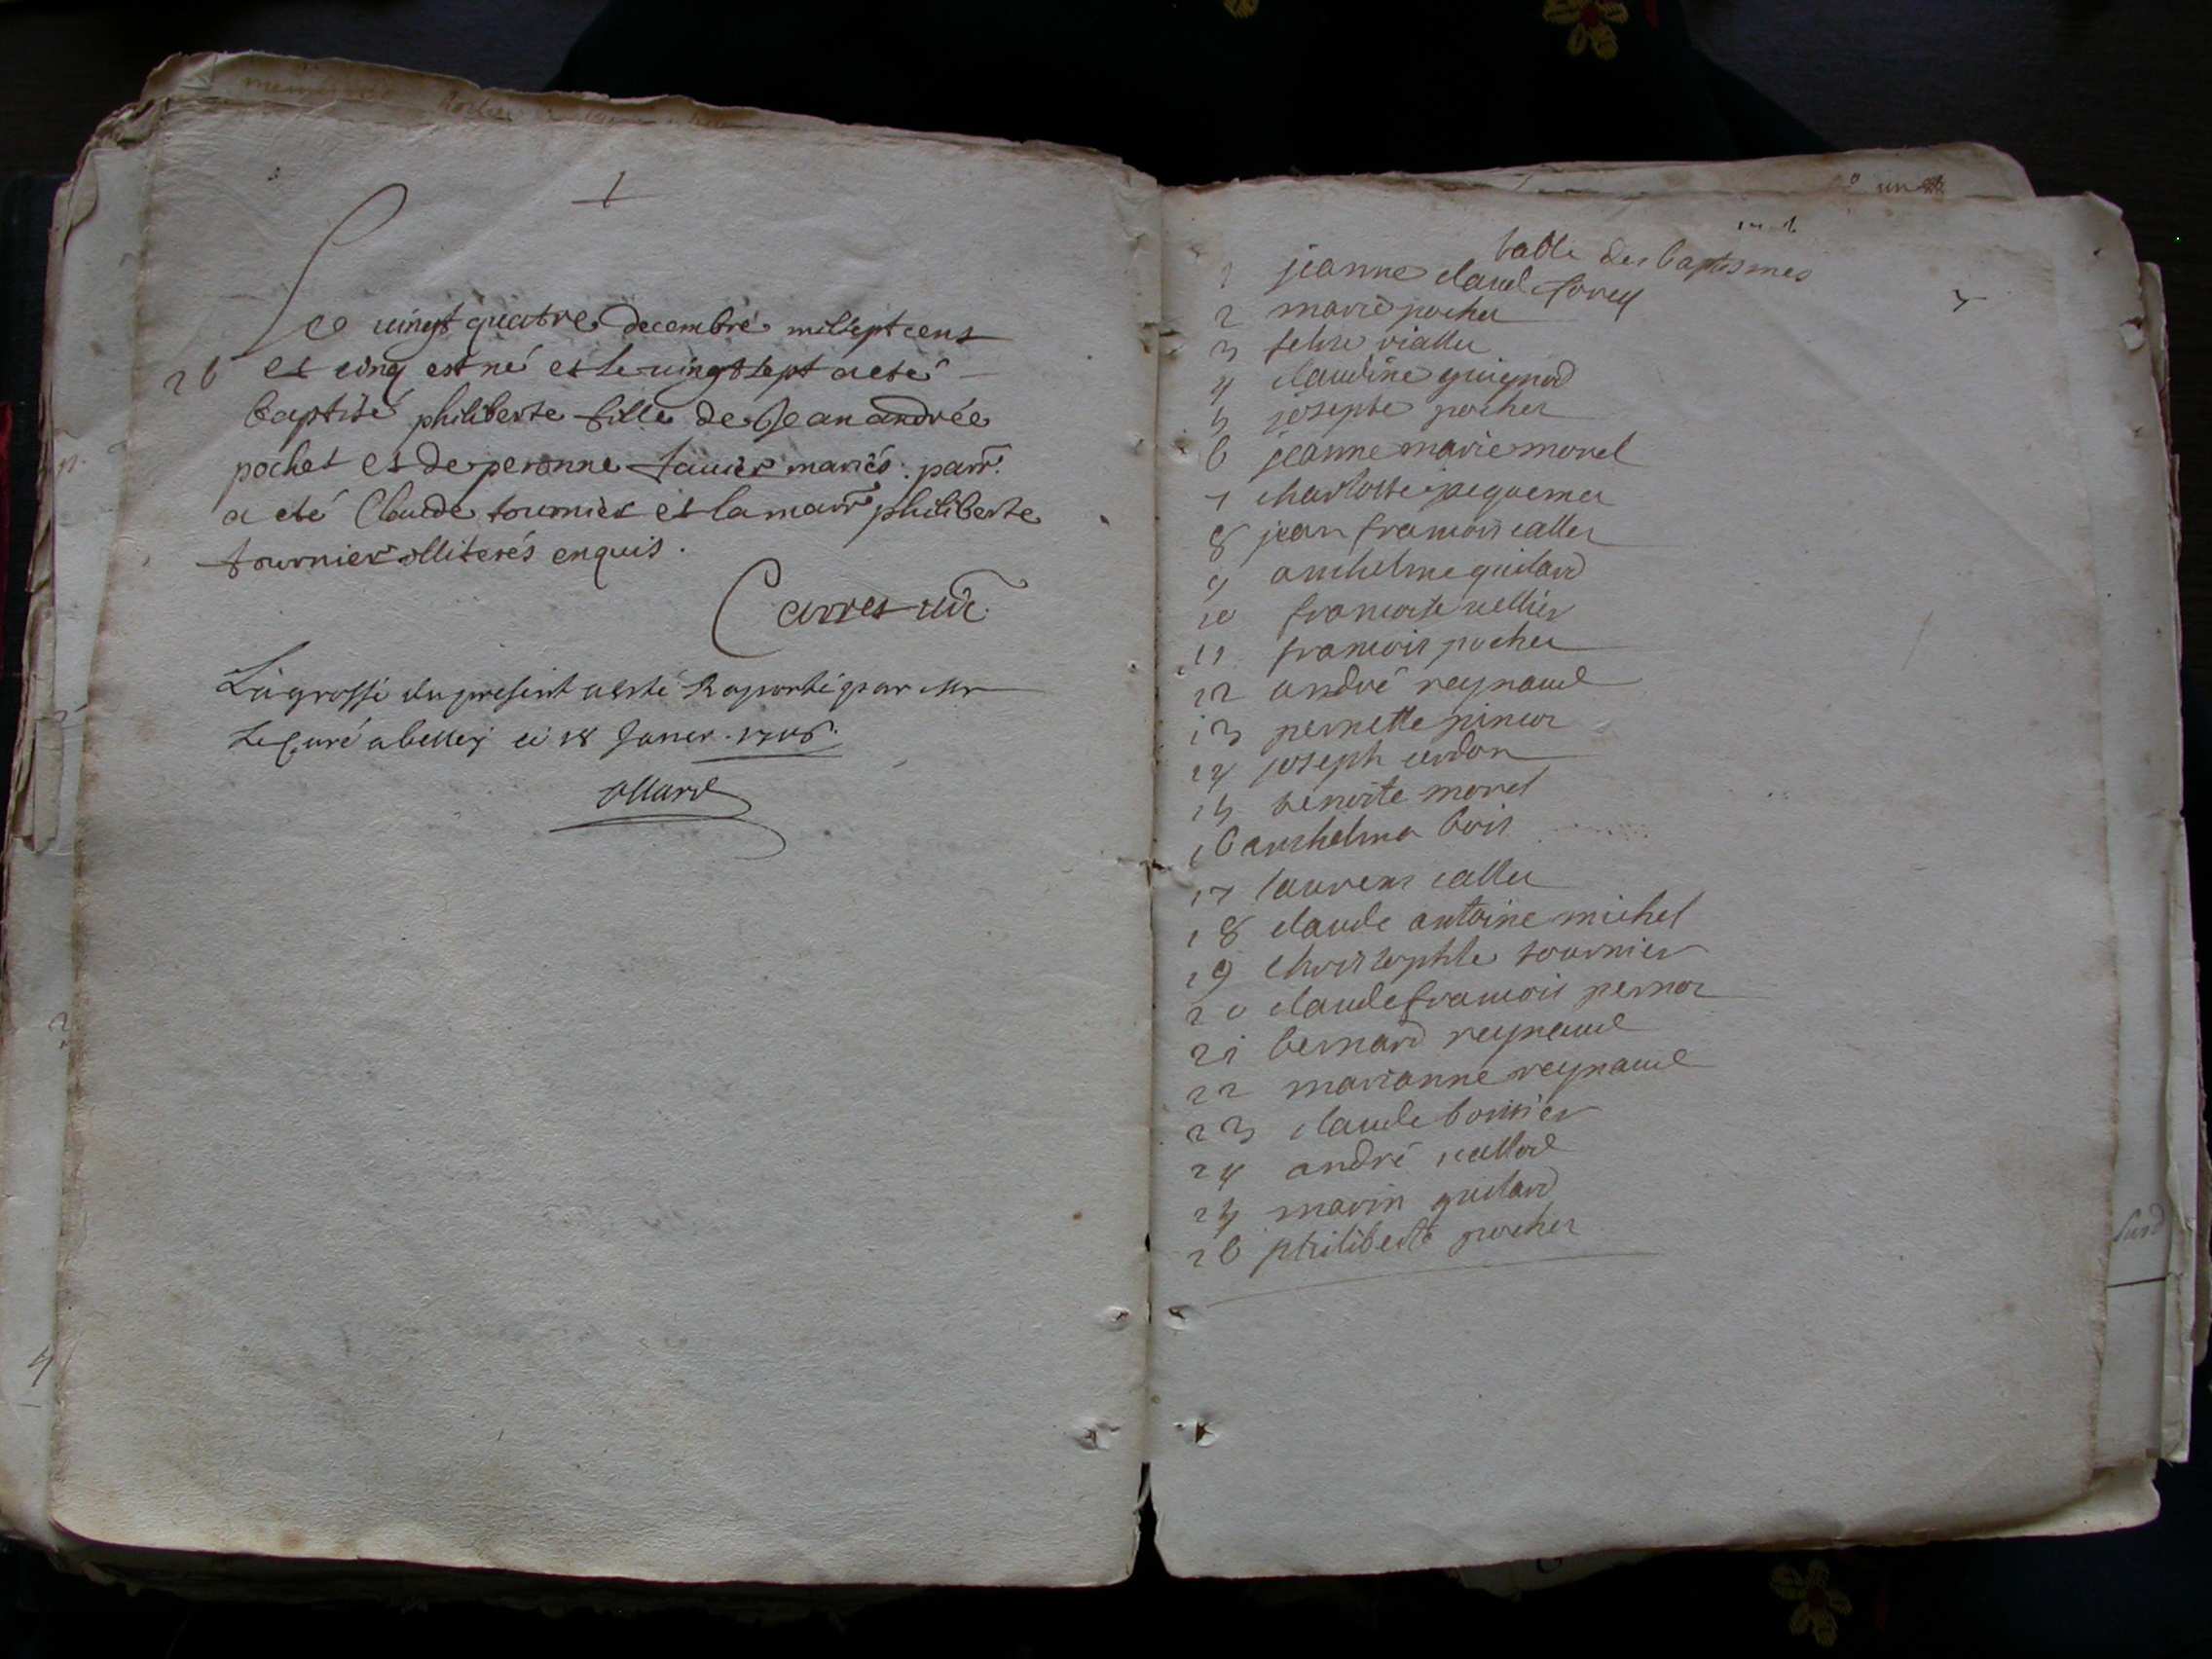 Le vingt quatre decembre mil sept cens
26 et cinq est né et le vingt sept a eté
baptisé philiberte fille de Jean andrée
pochet et de peronne tauier mariés : parr.
a eté Claude tournier et la marr philiberte
tournier illiterés enquis .
Carret vic
La grosse du present a esté Raporté par Mr
Le Curé a belley ce 18 Janer . 1706 .
ollard
table des baptismes
1 jeanne claud forey
2 marie pochet
3 viallet
4 claudine guignod
5 josephe pochet
6 jeanne marie morel
7 charlotte jaquemet
8 jean francois callet
9 anthelme guilard
10 francoise vellier
11 francois pochet
12 andré reynaud
13 pernette
14 joseph cerdon
15 benoite morel
16 anthelma bois
17 laurens callet
18 claude antoine michel
19 Christophle tournier
20 claude francois pernox
21 bernard reynaud
22 marianne reynaud
23 claude
24 andré
25 marin guilard
26 philiberte pochet